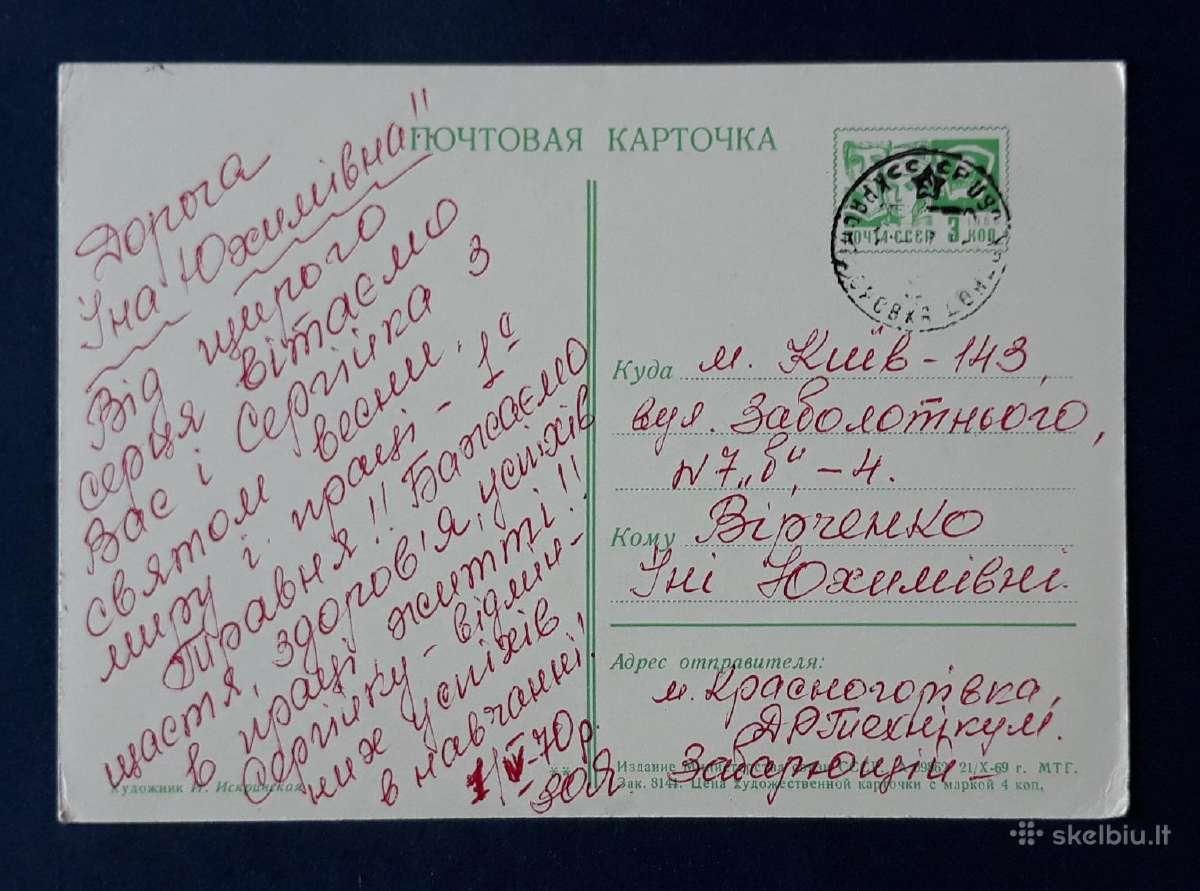 ПОЧТОВАЯ КАРТОЧКА
ПОЧТА·СССР 3 КОП
Дорога
Іна Юхимівна"
Від щирого
серця вітаємо
Вас і Сергійка з
святом весни,
миру і праці - 1а
Травня!! Бажаємо
щастя, здоров'я, успіхів
в праці житті!!
Сергійку - відмін-
них успіхів
в навчанні!
1/V-70р.
Зоя.
Куда м. Київ - 143,
вул. Заболотнього,
N 7 „б", - 4.
Кому Вірченко
Іні Юхимівні.
Адрес отправителя:
м. Красногорівка,
технікум.
Художник И. Искринская
Издание Министерства связи СССР 21/X-69 г. МТГ.
Зак. 8141. Цена художественной карточки с маркой 4 коп.
skelbiu.lt